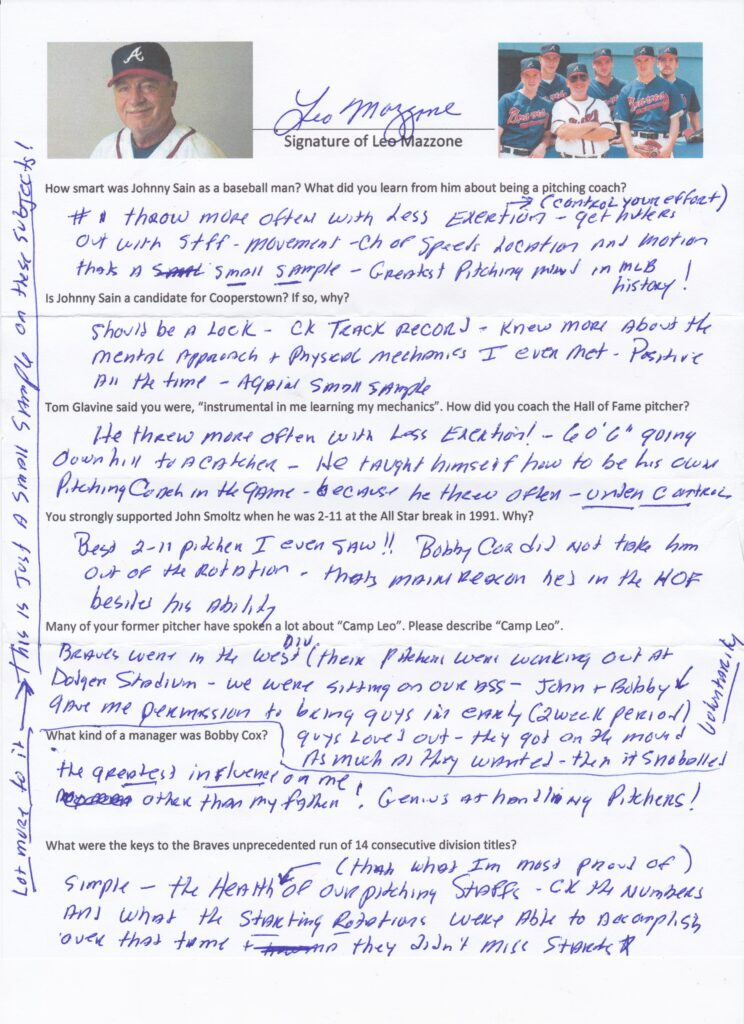 Leo Mazzone
Signature of Leo Mazzone
How smart was Johnny Sain as a baseball man? What did you learn from him about being a pitching coach?
→ (control your effort)
#1 throw more often with Less Exertion - get hitters
out with Stff - movement - Ch of Speeds Location and motion
thats A small sample - Greatest Pitching mind in MLB
history!
Is Johnny Sain a candidate for Cooperstown? If so, why?
Should be A Lock - CK TRACK RECORD - Knew more About the
mental Approach + Physical mechanics I ever met - Positive
All the time - AGAIN Small SAmple
Tom Glavine said you were, “instrumental in me learning my mechanics”. How did you coach the Hall of Fame pitcher?
He threw more often with Less Exertion! - 60'6" going
Downhill to A catcher - He taught himself how to be his own
Pitching Coach in the game - because he threw often - under control
You strongly supported John Smoltz when he was 2-11 at the All Star break in 1991. Why?
Best 2-11 pitcher I ever SAW!! Bobby Cox did not take him
out of the Rotation - thats MAIN REASON hes in the HOF
besides his Ability
Many of your former pitcher have spoken a lot about “Camp Leo”. Please describe “Camp Leo”.
BRAVES were in the west Div. (their Pitchers were working out At
Dodger Stadium - we were sitting on our ass - John + Bobby
gave me permission to bring guys in early (2 week period)
voluntarily
guys Loved out - they got on the mound
As much As they wanted - then it Snoballed
What kind of a manager was Bobby Cox?
the greatest influence on me
other than my father! Genius at handling Pitchers!
What were the keys to the Braves unprecedented run of 14 consecutive division titles?
(thats what Im most proud of)
Simple - the Health of our pitching Staffs - CK the Numbers
And what the Starting Rotations were Able to Accomplish
over that tame + they didn't miss Starts
Lot more to it → This is Just A Small Sample on these subjects!